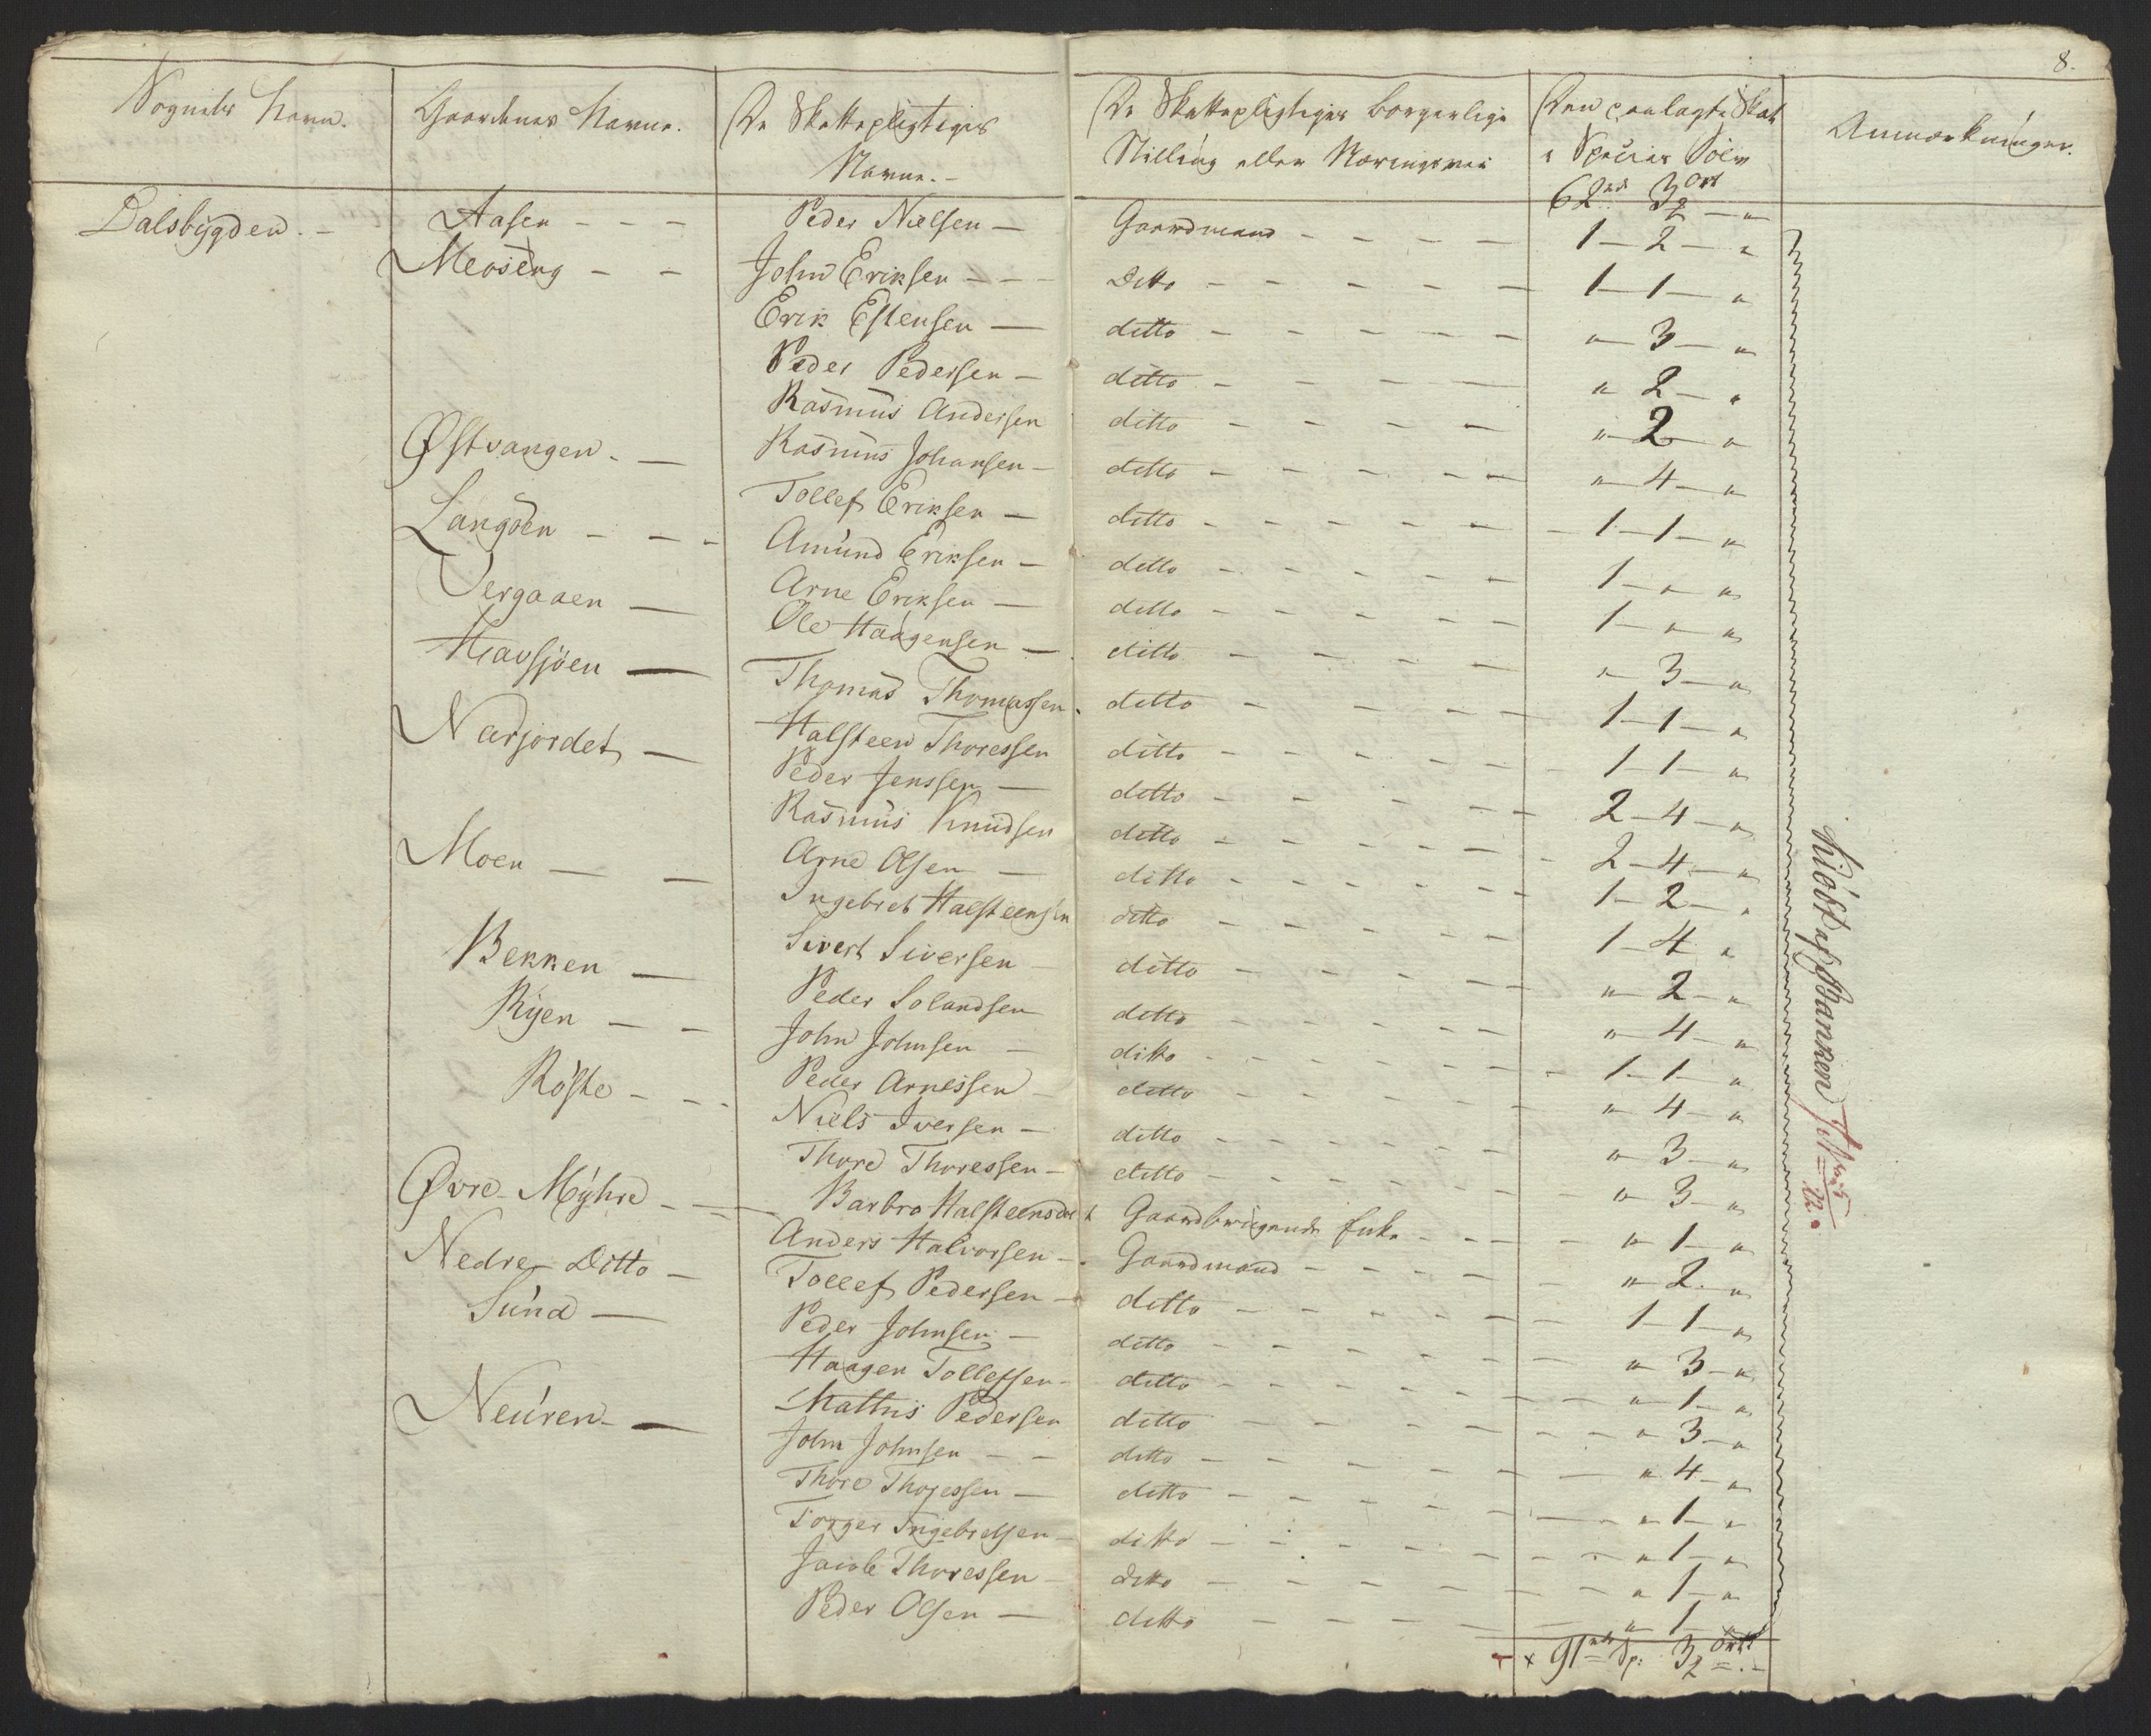 8.
Sognets Navn. Gaardenes Navne. De Skattepligtiges Navne. - De Skattepligtiges borgerlige Stilling eller Næringsvei Den paalagte Skat i Species Sølv Anmærkninger.
62 3 1/2 Ort - "
Dalsbygden. - Aasen - - - Peder Nielsen - Gaardmand - - - - 1 - 2 - "
Meoseng - - John Eriksen - - - Ditto - - - - - 1 - 1 - "
Erik Estensen - ditto - - - - - " - 3 - "
Peder Pedersen - ditto - - - - " 2 - "
Rasmus Andersen ditto - - - - " - 2 - "
Østvangen. - Rasmus Johansen - ditto - - - - - " - 4 - "
Tollef Eriksen - ditto - - - - - - 1 - 1 - "
Langøen - - - Amund Eriksen - ditto - - - - - 1 - " - "
Vergaaen - Arne Eriksen - ditto - - - - - 1 - " - "
Ole Haagensen - ditto - - - - " - 3 - "
Havsjøen - Thomas Thomassen. ditto - - - - 1 - 1 - "
Halsteen Thoressen ditto - - - - - 1 - 1 - "
Narjordet - Peder Jenssen - ditto - - - - - 2 - 4 - "
Rasmus Knudsen ditto - - - - - - 2 - 4 - "
Moen - - Arne Olsen - ditto - - - - - - 1 - 2 - "
Ingebret Halsteensen ditto - - - - - 1 - 4 "
Bekken - Sivert Siversen - ditto - - - - - " - 2 - "
Ryen - - Peder Solandsen ditto - - - - - " - 4 - "
John Johnsen - ditto - - - - - - 1 - 1 - "
Røste - - - Peder Arnessen - ditto - - - - - " - 4 - "
Niels Iversen - ditto - - - - - " - 3 - "
Thore Thoressen - ditto - - - - - - " - 3 - "
Øvre Myhre - - Barbro Halsteensdat Gaardbrugende Enke - - - - " - 1 - "
Nedre Ditto - Anders Halvorsen - Gaardmand - - - - - " - 2 - "
Sund - Tollef Pedersen - ditto - - - - - 1 - 1 - "
Peder Johnsen - ditto - - - - - - " - 3 - "
Haagen Tollefsen - ditto - - - - - - " - 1 - "
Neuren - Mathis Pedersen ditto - - - - - - " 3 - "
John Johnsen - - ditto - - - - - - " 4 - "
Thore Thoressen - ditto - - - - - - " 1 - "
Torger Ingebretsen - ditto - - - - - - - " 1 - "
Jacob Thoressen - Ditto - - - - - - " 1 - "
Peder Olsen - ditto - - - - " 1 "
x 91 Sp: 3 1/2 Ort
af Banken